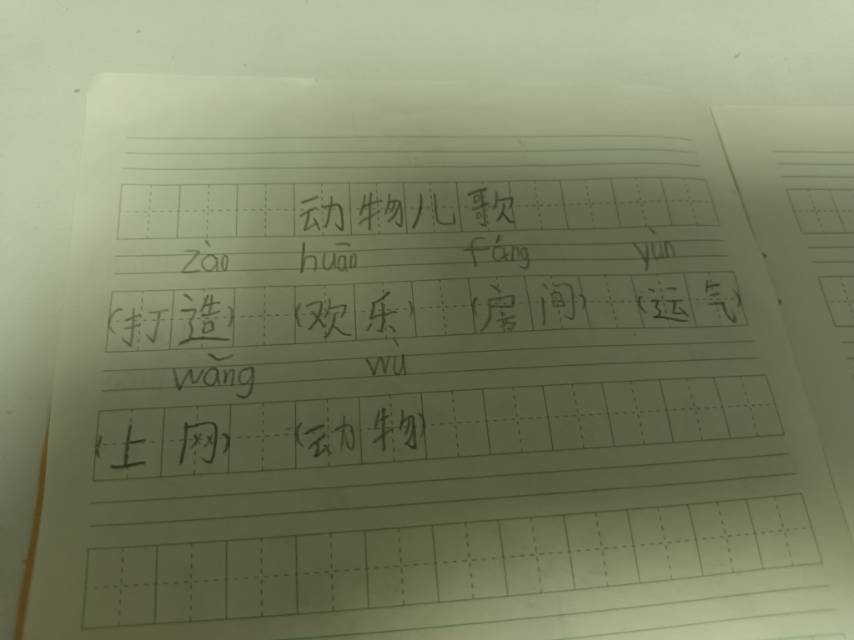 动物儿歌
zào huān fáng yùn
(打造) (欢乐) (房间) (运气)
wǎng wù
(上网) (动物)